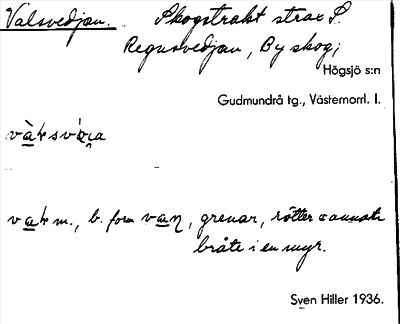 Valsvedjan. Skogstrakt strax S.
Regnsvedjan, Byskog;
Högsjö s:n
Gudmundrå tg., Västernorrl. l.
m., b. form van, grenar, rötter o annat
bråte i en myr.
Sven Hiller 1936.